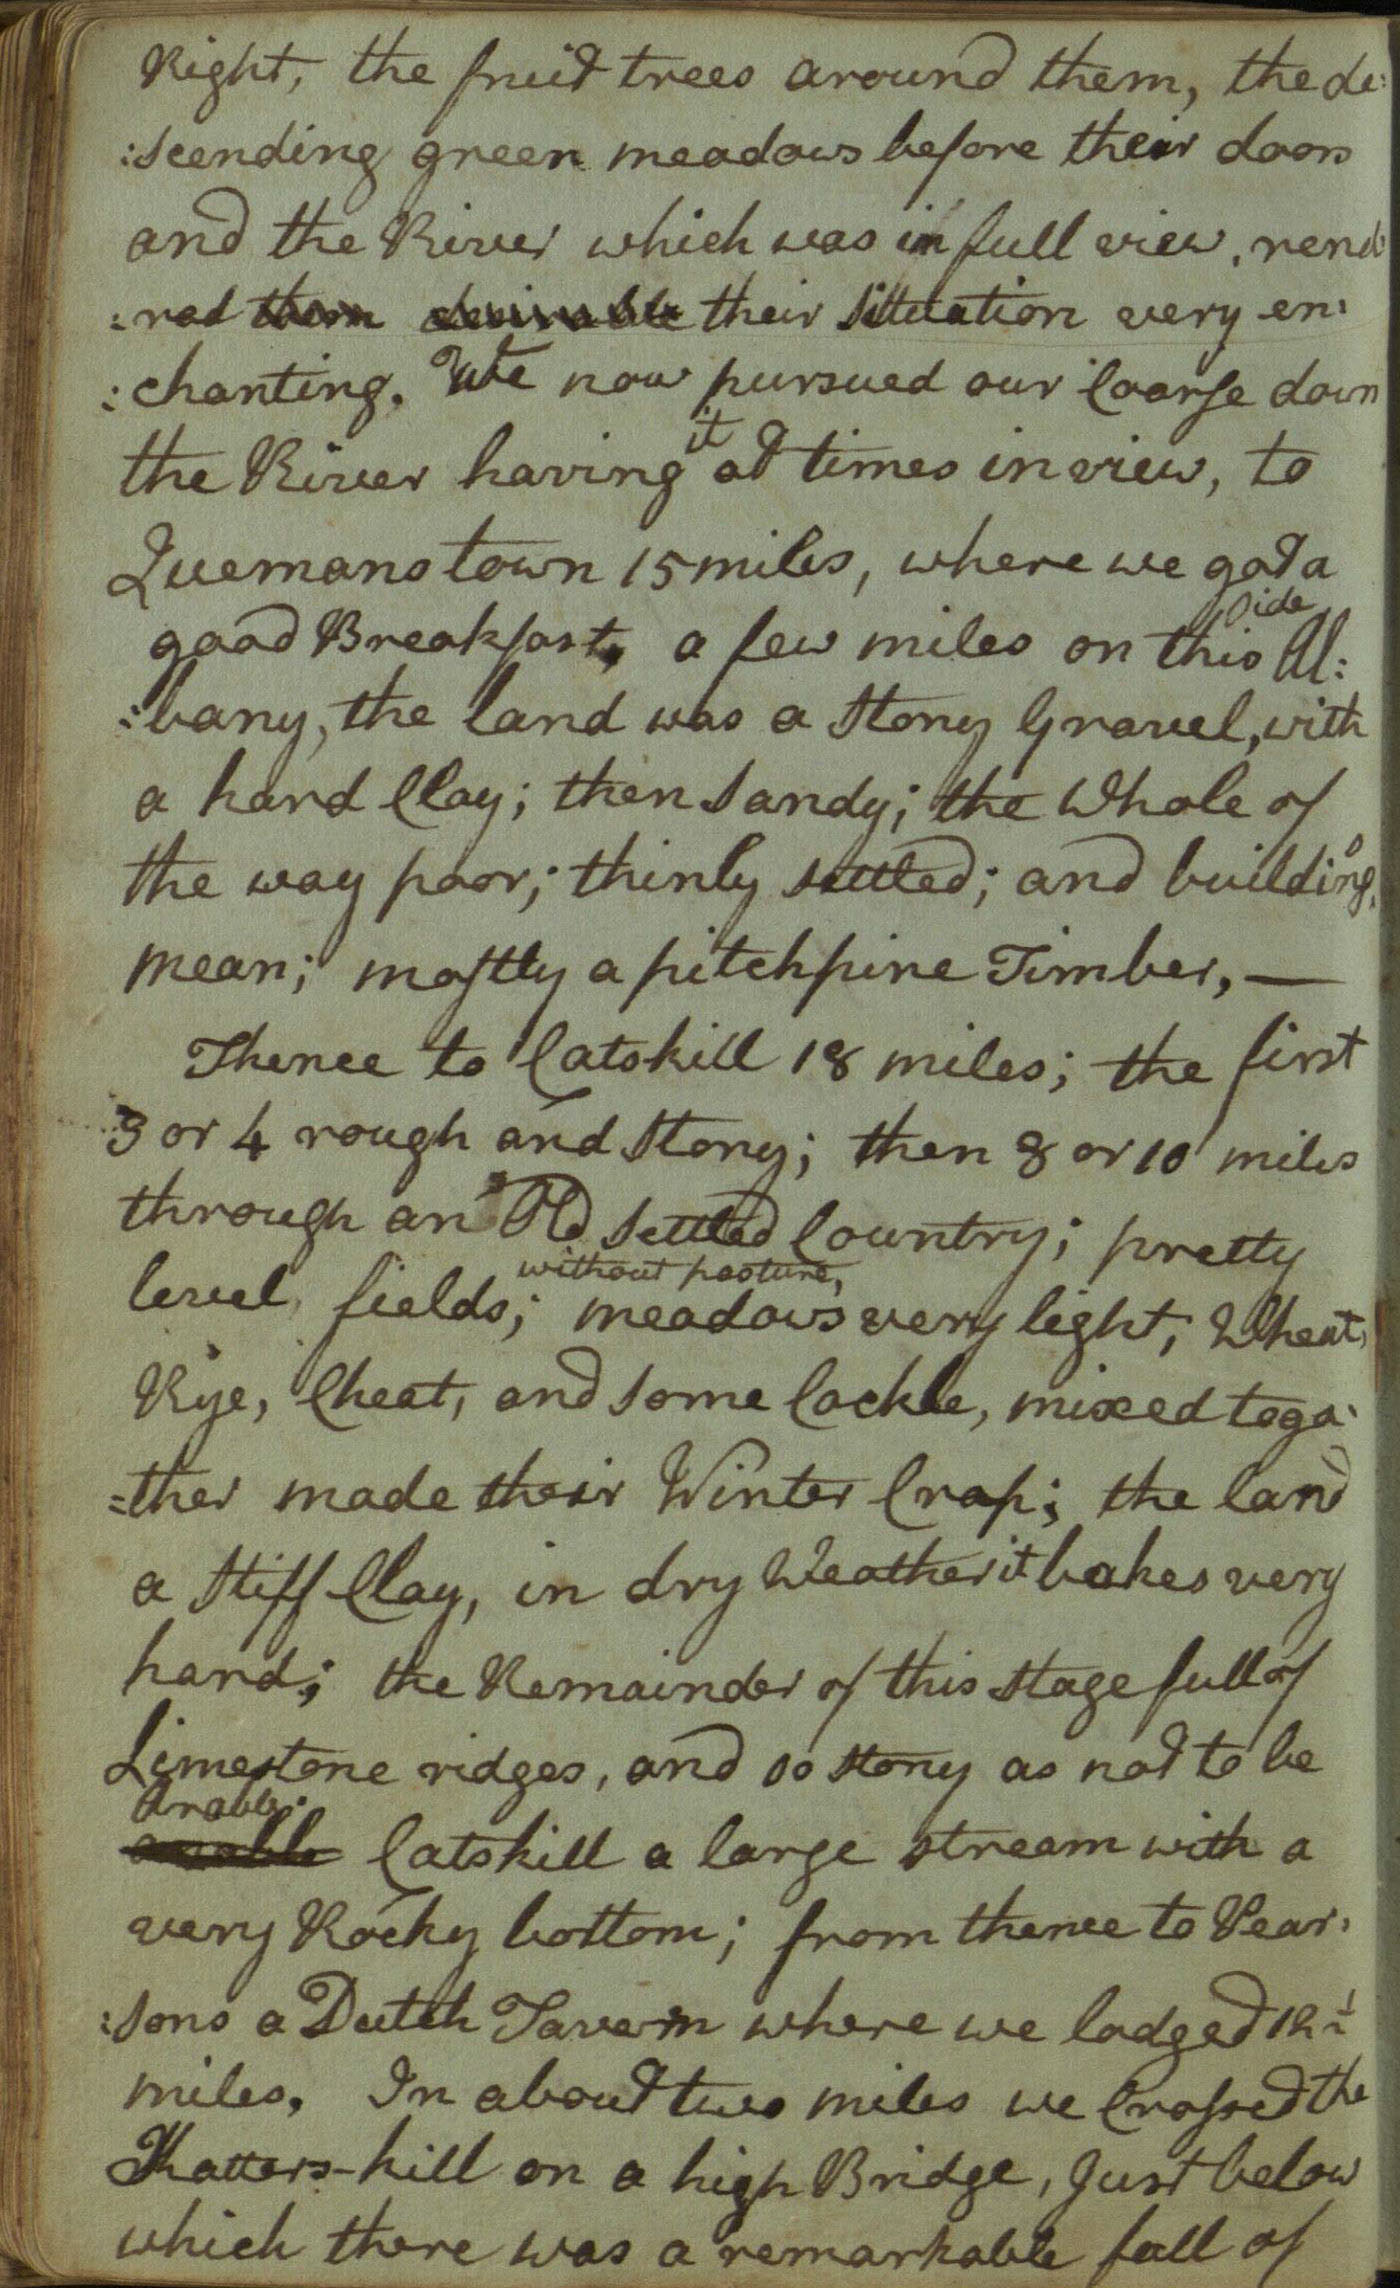 Right, the fruit trees around them, the de:
:scending green meadows before their doors
and the River which was in full view, rend
:red them desireable their Situation very en:
:chanting. We now pursued our Coarse down
the River having it at times in view, to
Quemanstown 15 miles, where we got a
good Breakfast, a few miles on this side Al:
:bany, the land was a Stony Gravel, with
a hard Clay; then Sandy; the Whole of
the way poor; thinly settled; and buildings
mean; mostly a pitchpine Timber, —
Thence to Catskill 18 miles; the first
3 or 4 rough and Stony; then 8 or 10 miles
through an Old Settled Country; pretty
level fields; without pasture, meadows very light; Wheat,
Rye, Cheat, and some Cockle, mixed toga:
=ther made their Winter Crop; the land
a Stiff Clay, in dry Weather it bakes very
hard; the Remainder of this Stage full of
Limestone ridges, and so stony as not to be
Arable. Catskill a large stream with a
very Rocky bottom; from thence to Pear:
:sons a Dutch Tavern where we lodged 12½
miles. In about two miles we Crossed the
Katters-kill on a high Bridge, Just below
which there was a remarkable fall of